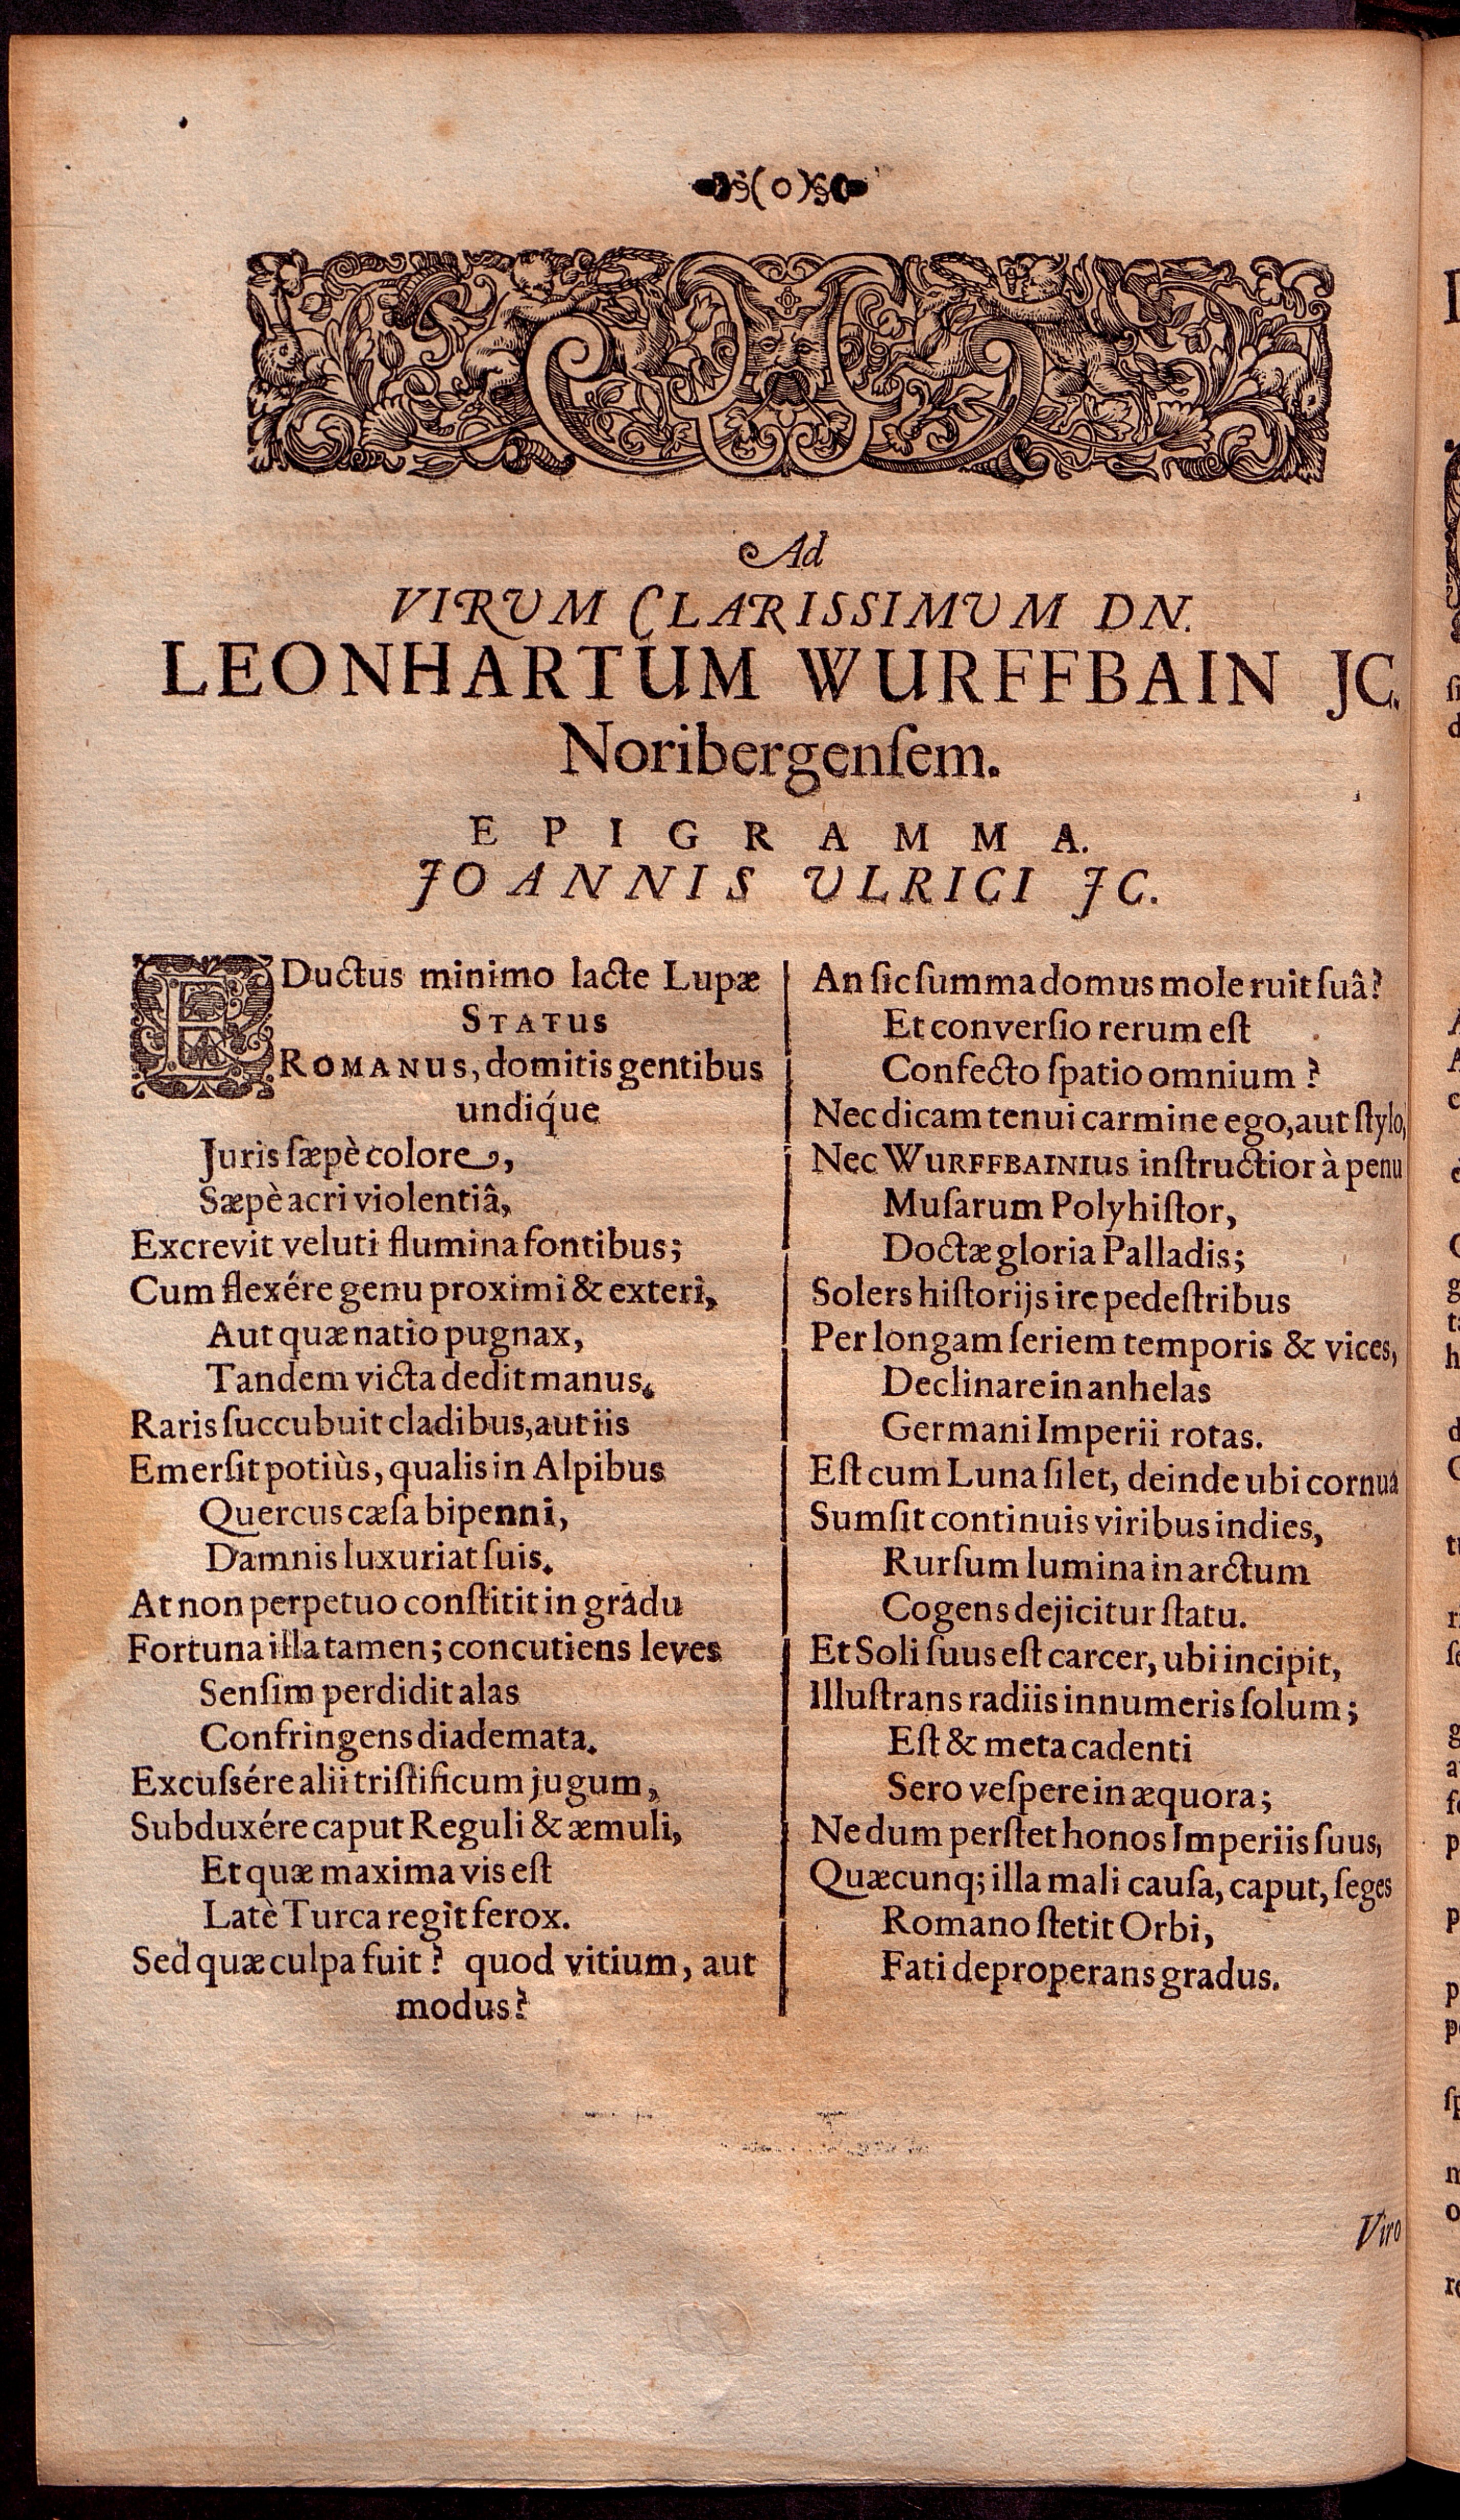 (o)
Ad
VIRUM CLARISSIMUM DN.
LEONHARTUM WURFFBAIN JC.
Noribergenſem.
EPIGRAMMA.
JOANNIS ULRICI JC.
EDuctus minimo lacte Lupæ
STATUS
ROMANUS, domitis gentibus
undiq́ue
Juris ſæpè colore,
Sæpè acri violentiâ,
Excrevit veluti flumina fontibus;
Cum flexére genu proximi & exteri,
Aut quæ natio pugnax,
Tandem victa dedit manus.
Raris ſuccubuit cladibus, aut iis
Emerſit potiùs, qualis in Alpibus
Quercus cæſa bipenni,
Damnis luxuriat ſuis.
At non perpetuo conſtitit in gradu
Fortuna illa tamen; concutiens leves
Senſim perdidit alas
Confringens diademata.
Excuſsére alii triſtificum jugum,
Subduxére caput Reguli & æmuli,
Et quæ maxima vis eſt
Latè Turca regit ferox.
Sed quæ culpa fuit? quod vitium, aut
modus?
An ſic ſumma domus mole ruit ſuâ?
Et converſio rerum eſt
Confecto ſpatio omnium?
Nec dicam tenui carmine ego, aut ſtylo,
Nec WURFFBAINIUS inſtructior à penu
Muſarum Polyhiſtor,
Doctæ gloria Palladis;
Solers hiſtorijs ire pedeſtribus
Per longam ſeriem temporis & vices,
Declinare in anhelas
Germani Imperii rotas.
Eſt cum Luna ſilet, deinde ubi cornua
Sumſit continuis viribus indies,
Rurſum lumina in arctum
Cogens dejicitur ſtatu.
Et Soli ſuus eſt carcer, ubi incipit,
Illuſtrans radiis innumeris ſolum;
Eſt & meta cadenti
Sero veſpere in æquora;
Nedum perſtet honos Imperiis ſuus,
Quæcunq; illa mali cauſa, caput, ſeges
Romano ſtetit Orbi,
Fati deproperans gradus.
Viro